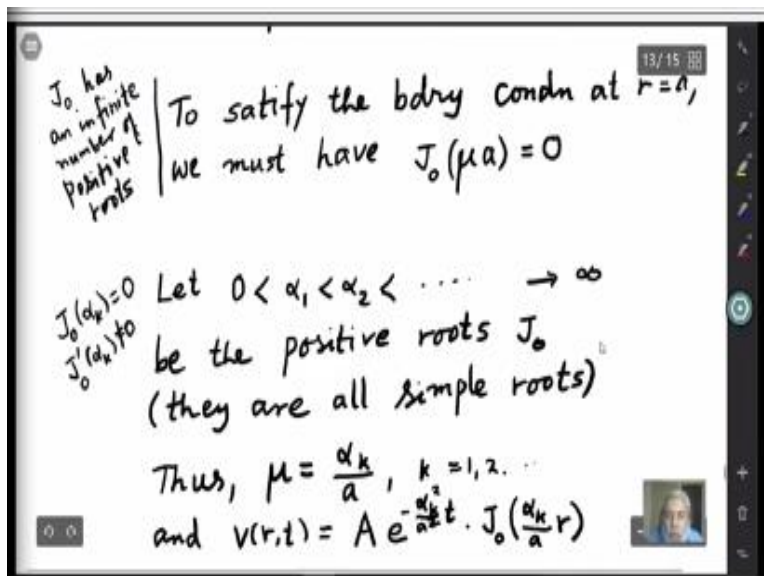 13/15
J₀ has
an infinite
number of
positive
roots
To satify the bdry condn at r = a,
we must have J₀(μa) = 0
J₀(αₖ) = 0
J₀'(αₖ) ≠ 0
Let 0 < α₁ < α₂ < ···· → ∞
be the positive roots J₀
(they are all simple roots)
Thus, μ = αₖ/a, k = 1, 2. ··
and v(r,t) = A e^(-αₖ²/a² t) . J₀(αₖ/a r)